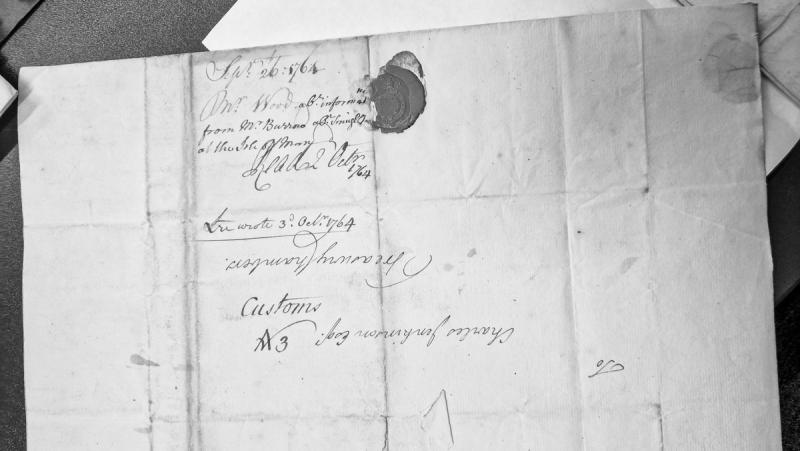 Sepr. 26: 1764
Mr. Wood abt. informan
from Mr. Burrow abt. Smugl
at the Isle of Man
Read 2 Octr.
1764
Lre wrote 3d. Octr. 1764
Customs
N 3
To
Charles Jenkinson Esqr.
Treasury Chambers.